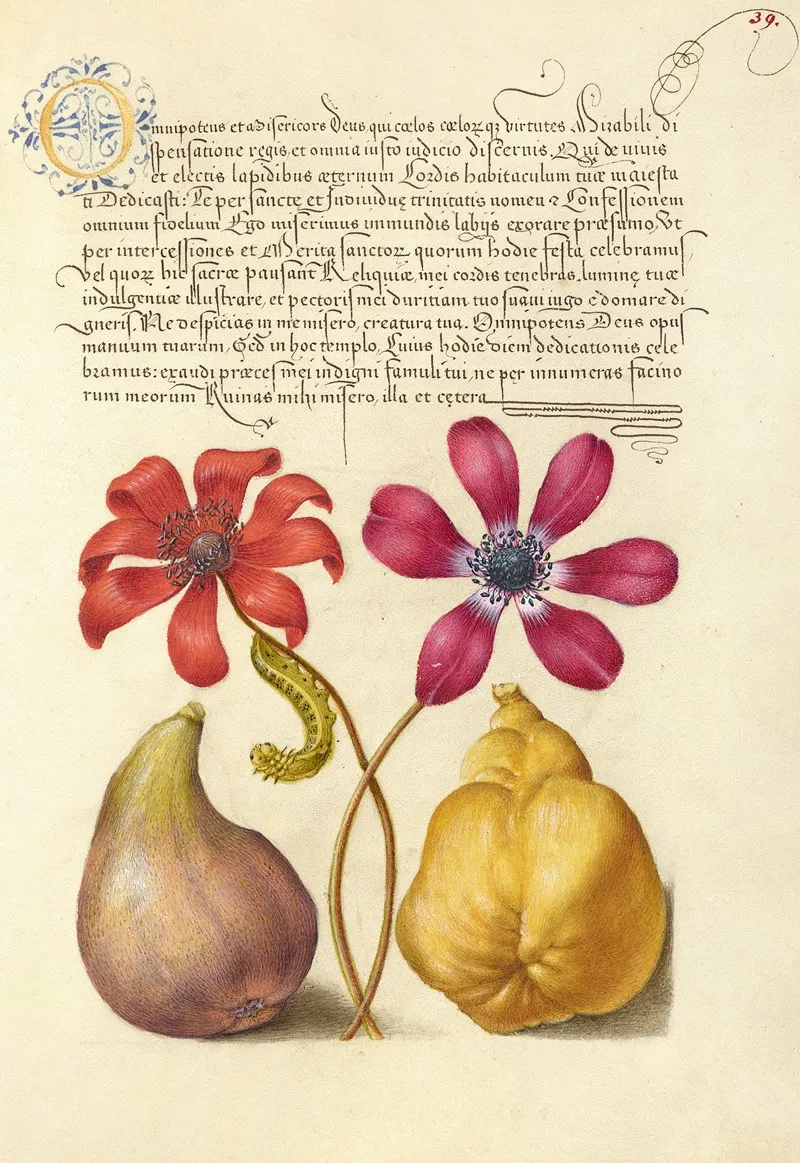 39.
Omnipotens et Misericors Deus, qui cœlos cœlorꝝ qꝫ virtutes Mirabili di
spensatione regis, et omnia iusto iudicio discernis, Qui de viuis
et electis lapidibus æternum Cordis habitaculum tuæ maiesta
ti Dedicasti: Te per sanctę et Indiuiduę trinitatis nomen ⁊ Confessionem
omnium fidelium Ego miserimus immundis labijs exorare præsumo, Vt
per intercessiones et Merita sanctorꝝ quorum hodie festa celebramus,
vel quorꝝ hic sacræ pausant Reliquiæ, mei cordis tenebras, luminę tuæ
indulgentiæ illustrare, et pectoris mei duritiam tuo suaui iugo edomare di
gneris. Ne despicias in me misero, creatura tua. Omnipotens Deus opus
manuum tuarum, Sed in hoc templo, Cuius hodie diem dedicationis cele
bramus: exaudi præces mei indigni famuli tui, ne per innumeras facino
rum meorum Ruinas mihi misero, illa et cętera